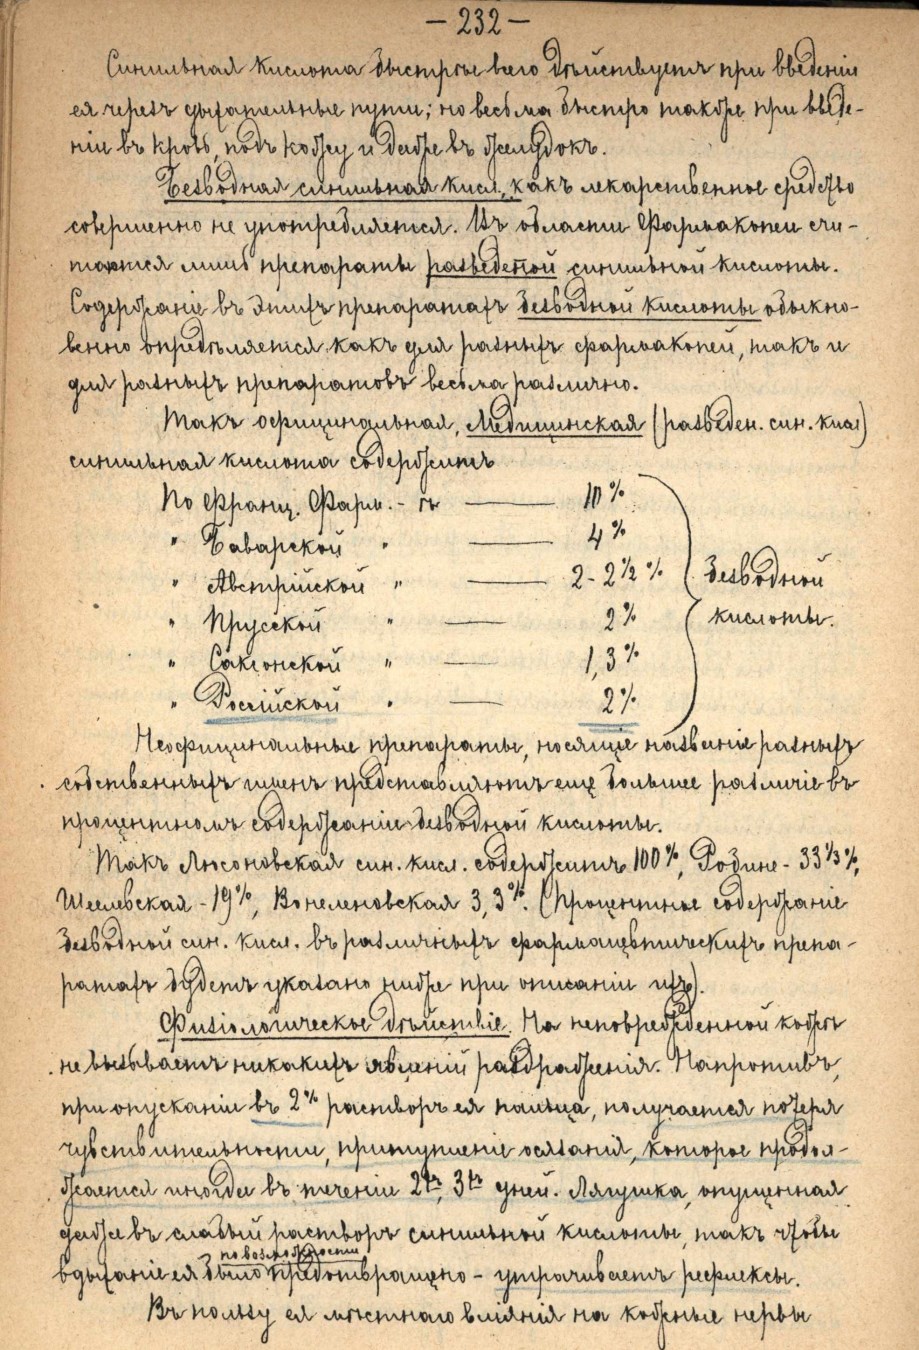 — 232 —
Синильная кислота быстрѣе всего дѣйствуетъ при введеніи
ея черезъ дыхательные пути; но весьма быстро также при введе-
ніи въ кровь, подъ кожу и даже въ желудокъ.
Безводная синильная кисл. какъ лекарственное средство
совершенно не употребляется. Въ области Фармакопеи счи-
таются лишь препараты разведеной синильной кислоты.
Содержаніе въ этихъ препаратахъ безводной кислоты обыкно-
венно опредѣляется какъ для разныхъ фармакопей, такъ и
для разныхъ препаратовъ весьма различно.
Такъ официнальная, Медицинская (разведен. син. кисл)
синильная кислота содержитъ
По Франц. Фарм. - ѣ — 10%
" Баварской " — 4%
" Австрійской " — 2-2½% безводной
" Прусской " — 2% кислоты.
" Саксонской " — 1,3%
" Россійской " — 2%
Неофицинальные препараты, носящіе названіе разныхъ
собственныхъ именъ представляютъ еще большее различіе въ
процентномъ содержаніи безводной кислоты.
Такъ Люсоновская син. кисл. содержитъ 100%, Робине - 33⅓%,
Шеелевская - 19%, Вокеленовская 3,3%. (Процентное содержаніе
безводной син. кисл. въ различныхъ фармацевтическихъ препа-
ратахъ будетъ указано ниже при описаніи ихъ).
Физіологическое дѣйствіе. На неповрежденной кожѣ
не вызываетъ никакихъ явленій раздраженія. Напротивъ,
при опусканіи въ 2% растворъ ея пальца, получается потеря
чувствительности, притупленіе осязанія, которое продол-
жается иногда въ теченіе 2хъ, 3хъ дней. Лягушка, опущенная
даже въ слабый растворъ синильной кислоты, такъ чтобы
по возможности
вдыханіе ея было предотвращено - утрачиваетъ рефлексы.
Въ пользу ея мѣстнаго вліянія на кожные нервы